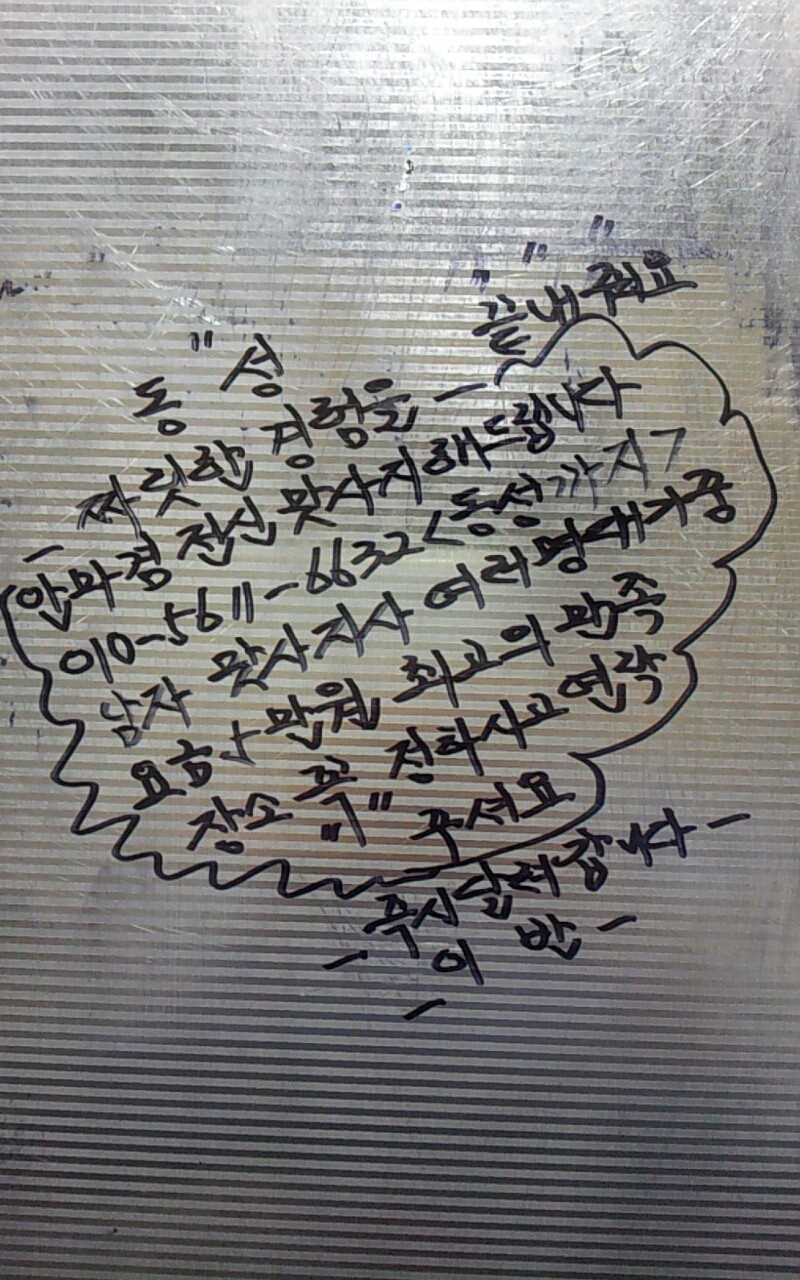 " " "
끝내줘요
동 " 성
짜릿한 경험을 -
- 안마겸 전신 맛사지해드립니다
010-5611-6632<동성까지7
남자 맛사지사 여러명대기중
요금 만원 최고의 만족
장소 꼭 정하시고 연락
"1" 주셔요
즉시달려갑니다 -
- 이 반 -
-